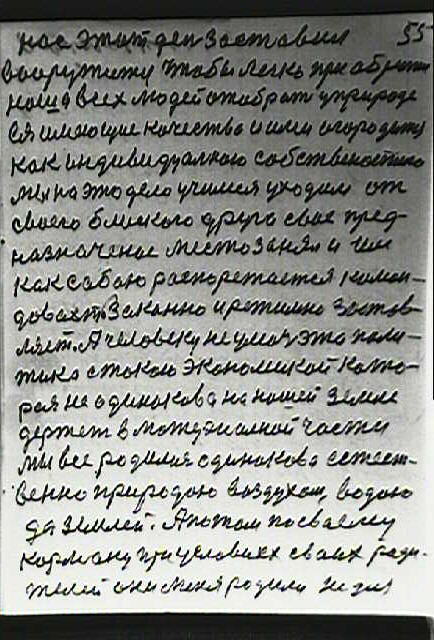 нас этит деп заставил 55
вооружити чтобы легко приобрити
наша всех людей отобрать уприроде
ся имеющие качества и ими огородити
как индивидуалкою собствености
мы на это дело учимся уходим от
своего близкого друга свое пред-
назначение место занял и им
как сабаю распорежается коман-
довахт. Законно и режимно застав-
ляет. А человеку не умоч это поли-
тика с такою экономикой кото-
рая не одинакова на нашей земле
держет в материалной части
мы все родилися одинаково естест-
венно природаю воздухом, водою
да землей. А потом посваему
карману при условиех сваих роди-
телей они меня родили не для